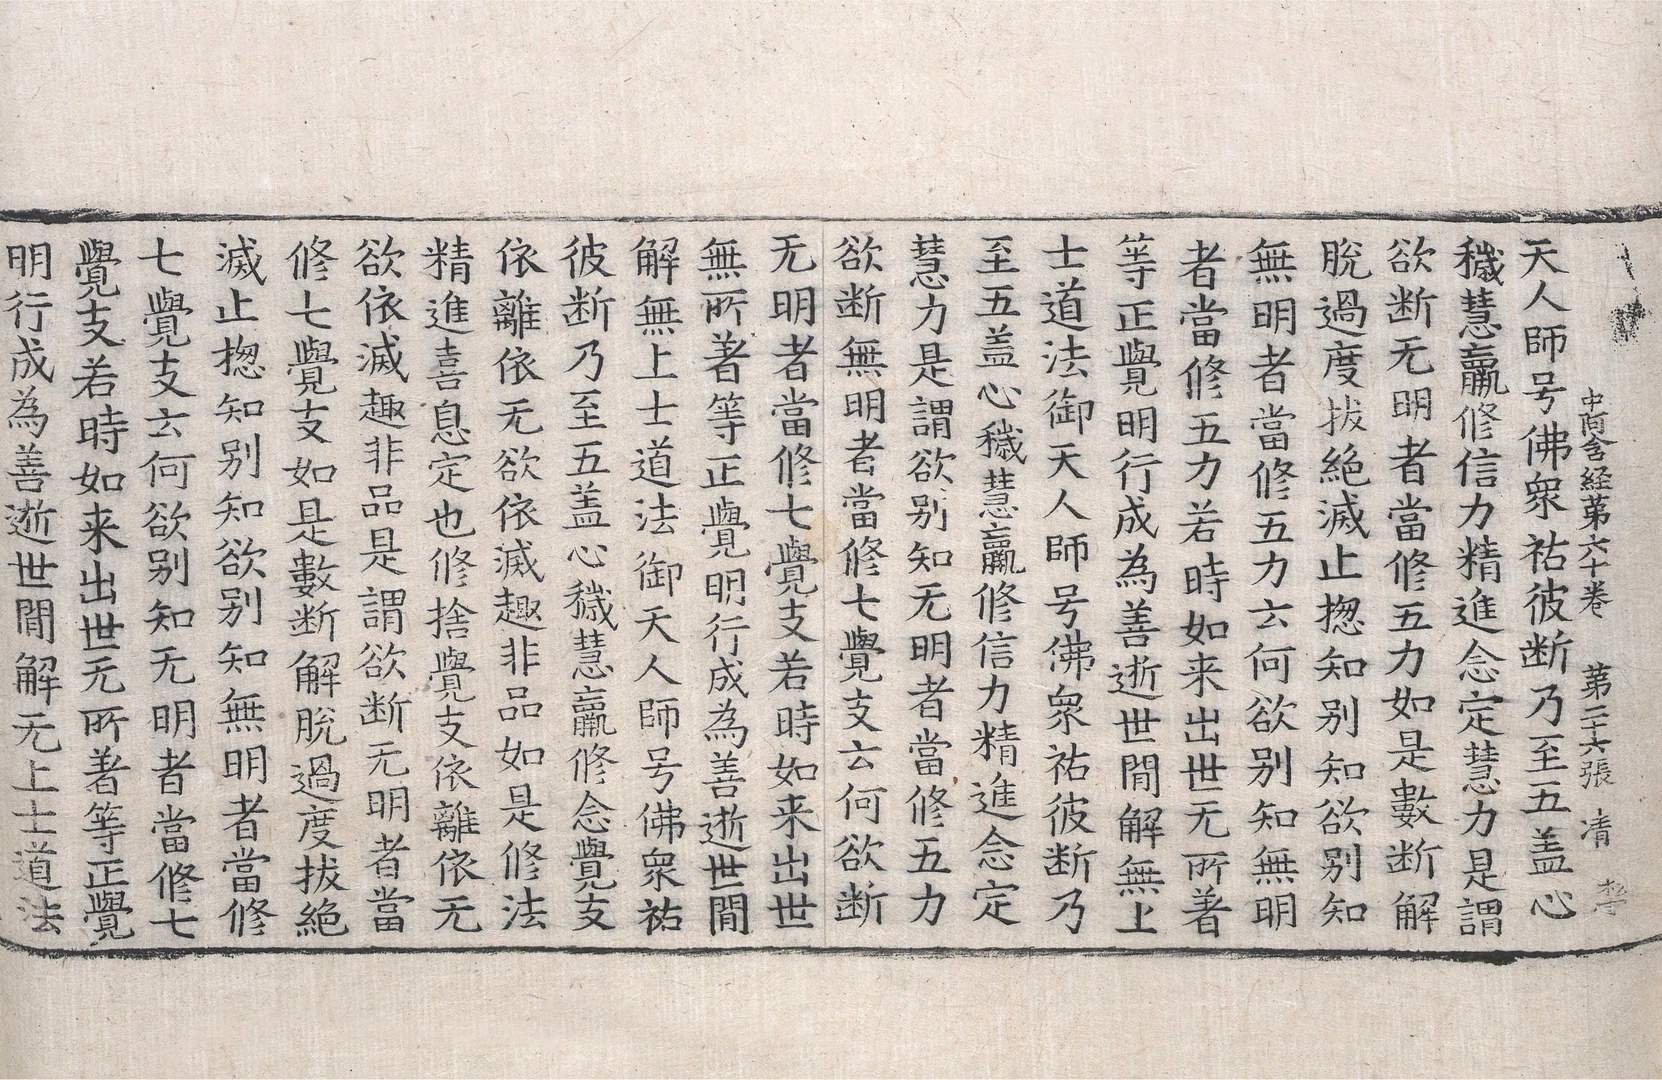 中阿含経第六十卷 第二十六張 清 李
天人師号佛衆祐彼断乃至五盖心
穢慧羸修信力精進念定慧力是謂
欲断无明者當修五力如是數断解
脫過度拔絶滅止揔知别知欲别知
無明者當修五力云何欲别知無明
者當修五力若時如来出世无所著
等正覺明行成為善逝世間解無上
士道法御天人師号佛衆祐彼断乃
至五盖心穢慧羸修信力精進念定
慧力是謂欲别知无明者當修五力
欲断無明者當修七覺支云何欲断
无明者當修七覺支若時如来出世
無所著等正覺明行成為善逝世間
解無上士道法御天人師号佛衆祐
彼断乃至五盖心穢慧羸修念覺支
依離依无欲依滅趣非品如是修法
精進喜息定也修捨覺支依離依无
欲依滅趣非品是謂欲断无明者當
修七覺支如是數断解脫過度拔絶
滅止揔知别知欲别知無明者當修
七覺支云何欲别知无明者當修七
覺支若時如来出世无所著等正覺
明行成為善逝世間解无上士道法